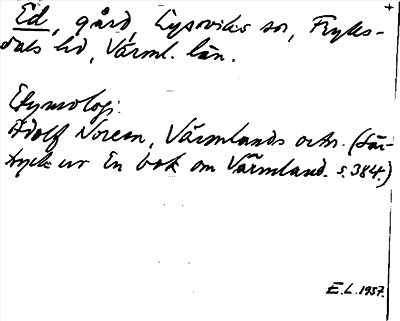 Ed, gård, Lysviks sn, Fryks-
dals hd, Värml. län.
Etymologi:
Adolf Noreen, Värmlands ortn. (Sär-
tryck ur En bok om Värmland. s. 384.)
E.L. 1957.